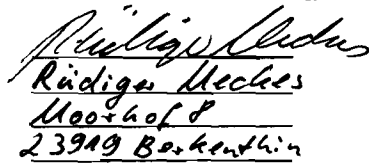 Rüdiger Meckes
Rüdiger Meckes
Moorhof 8
23919 Berkenthin